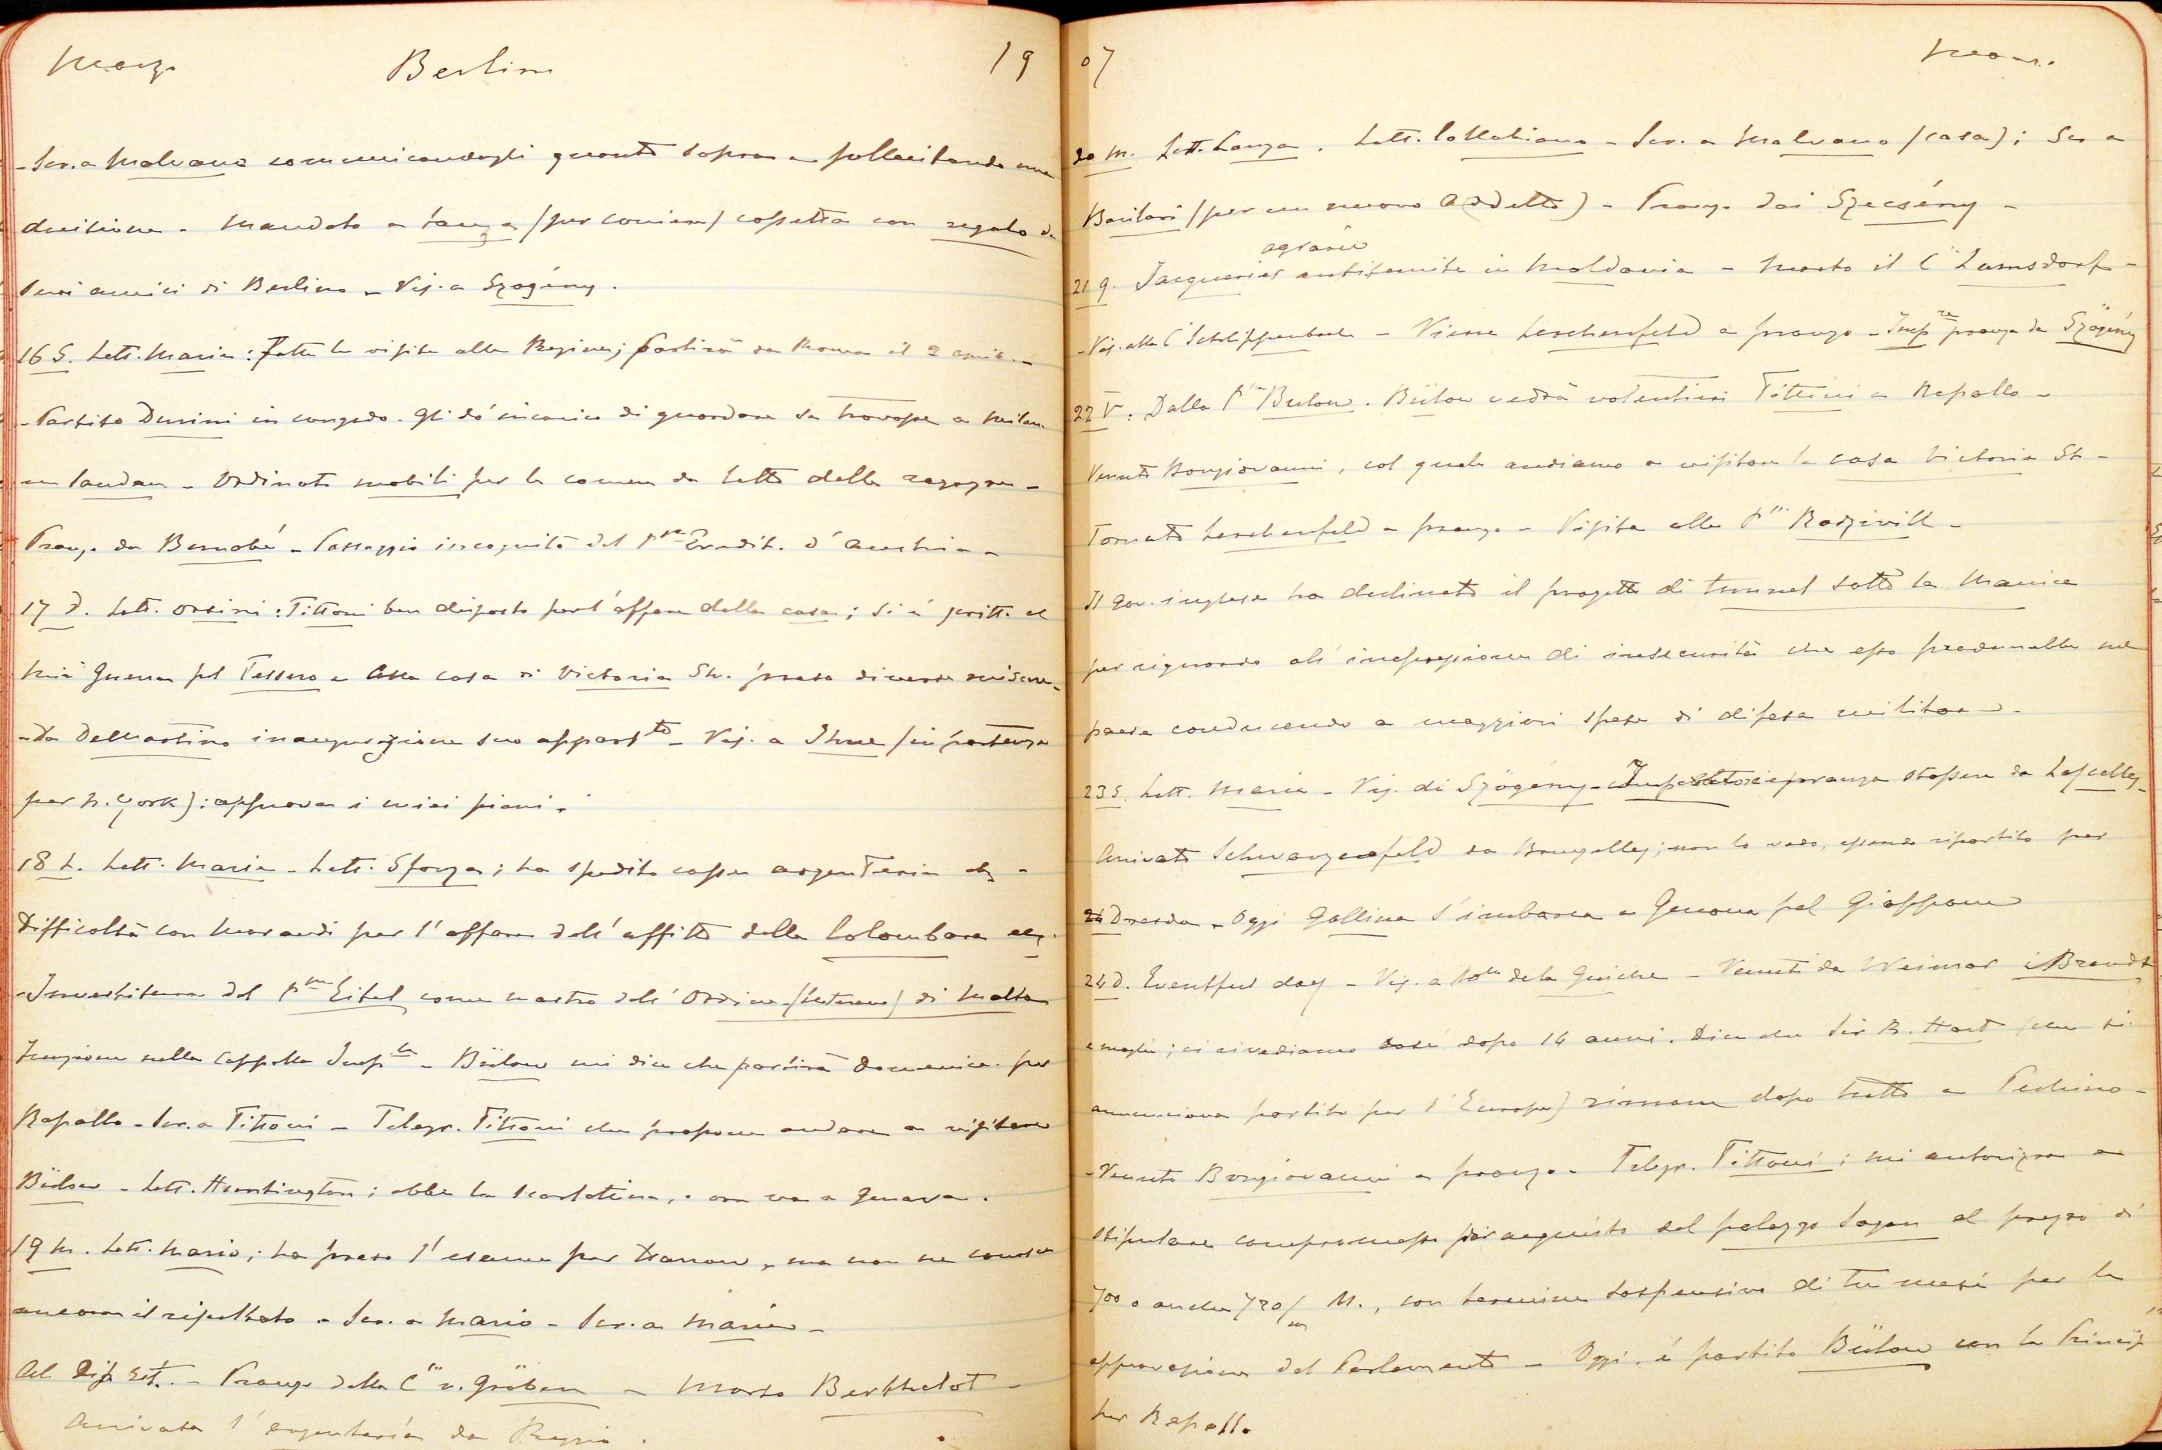 Marzo Berlino 19
- Scr. a Malvano communicandogli quanto sopra e sollecitando una
decisione - Mandato a Lanza (per corriere) cassetta con regalo de
suoi amici di Berlino - Vis. a Szögény.
16 S. Lett. Maria: Fatta la visita alla Regina; partirà da Roma il 2 apr. -
- Partito Durini in congedo. Gli dò incarico di guardare se trovasse a Milano
un landau - Ordinati mobili per la camera da letto delle ragazze -
Pranzo da Bernabé - Passaggio incognito del Pr. Eredit. d'Austria -
17 D. Lett. Orsini: Tittoni ben disposto per l'affare della casa; si è scritto al
Min. Guerra pel Tessero - Alla casa di Victoria Str. preso diverse misure -
- Da DeMartino inaugurazione suo appart.to - Vis. a Ihne (in partenza
per N. York): approva i miei piani.
18 L. Lett. Maria - Lett. Sforza; ha spedito casse argenteria etc -
Difficoltà con Morandi per l'affare dell'affitto della Colombara etc.
- Investitura del Pr. Eitel come mastro dell'Ordine (luterano) di Malta
Funzione nella Cappella Imp.le - Bülow mi dice che partirà Domenica per
Rapallo - Scr. a Tittoni - Telegr. Tittoni che propone andare a visitare
Bülow - Lett. Huntington; ebbe la scarlatina, e ora va a Genova.
19 M. Lett. Mario; ha preso l'esame per Harrow, ma non ne conosce
ancora il risultato - Scr. a Mario - Scr. a Maria -
Al Dip. Est. - Pranzo dalla C.ssa v. Gröben - Morto Berthelot -
Arrivata l'argenteria da Reggio.
07 Marzo
20 M. Lett. Lanza. Lett. Collobiano - Scr. a Malvano (casa); Scr a
Bacilari (per un nuovo Addetto) - Pranzo dai Szecsény -
agrarie
21 G. Jacqueries antisemite in Moldavia - Morto il C. Lamsdorf -
- Vis. alla C. Schlippenbach - Viene Lerchenfeld a pranzo - Imp.re pranza da Szögény
22 V. Dalla P.ssa Bülow. Bülow vedrà volentieri Tittoni a Rapallo -
Venuto Bongiovanni, col quale andiamo a visitare la casa Victoria St -
Tornato Lerchenfeld a pranzo - Visita alla P.ssa Radziwill -
Il gov. inglese ha declinato il progetto di tunnel sotto la Manica
per riguardo all'impressione di insecurità che esso produrrebbe nel
paese conducendo a maggiori spese di difesa militare -
23 S. Lett. Maria - Vis. di Szögény - Imperatore pranza stassera da Lascelles -
Arrivato Schwarzenfeld da Bruxelles; non lo vedo, essendo ripartito per
Dresda - Oggi Gallina s'imbarca a Genova pel Giappone
24 D. Eventful day - Vis. a M.me de la Guiche - Venuti da Weimar i Brandt
e moglie; ci rivediamo così dopo 14 anni. Dice che Sir R. Hart (che si
annunciava partito per l'Europa) rimane dopo tutto a Pechino -
- Venuto Bongiovanni a pranzo - Telegr. Tittoni: mi autorizza a
stipulare compromesso per acquisto del palazzo Sagan al prezzo di
700 o anche 720/m M., con termine sospensivo di tre mesi per la
approvazione del Parlamento - Oggi è partito Bülow con la Princip.
per Rapallo